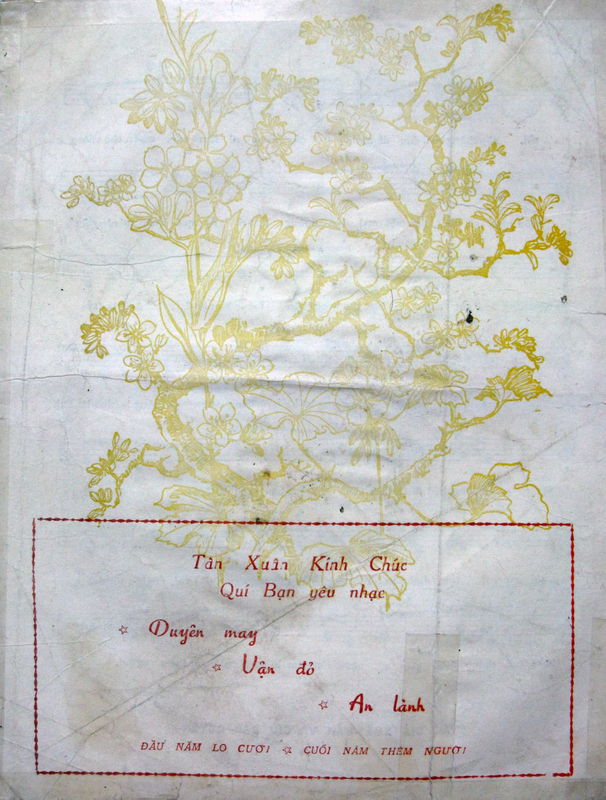 Tân Xuân Kính Chúc
Quí Bạn yêu nhạc
☆ Duyên may
☆ Vận đỏ
☆ An lành
ĐẦU NĂM LO CƯỚI ☆ CUỐI NĂM THÊM NGƯỜI